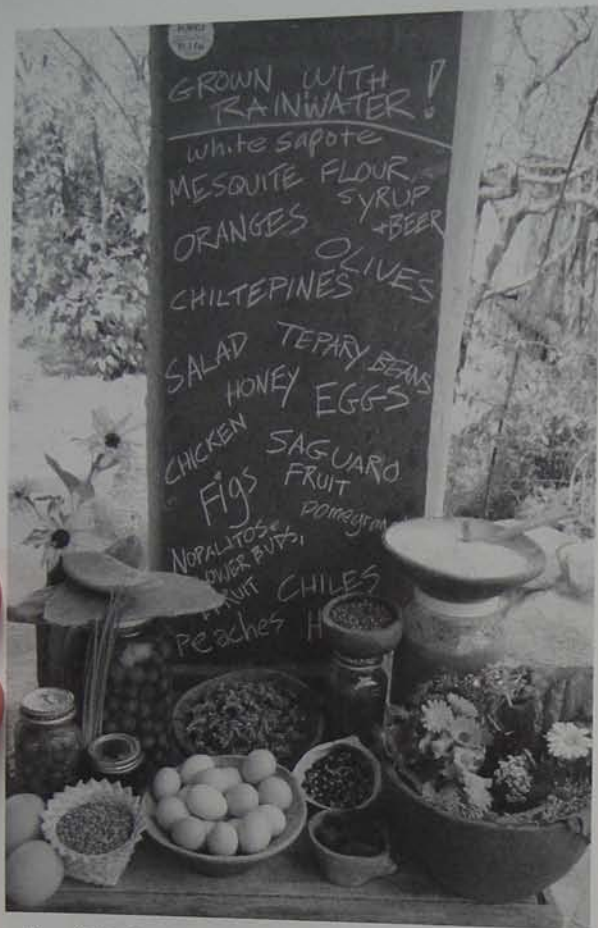 GROWN WITH
RAINWATER!
white sapote
MESQUITE FLOUR,
SYRUP
+BEER
ORANGES
OLIVES
CHILTEPINES
SALAD
TEPARY BEANS
HONEY
EGGS
CHICKEN
SAGUARO
FRUIT
Figs
pomegran
NOPALITOS,
OWER BUDS,
FRUIT
CHILES
Peaches
H